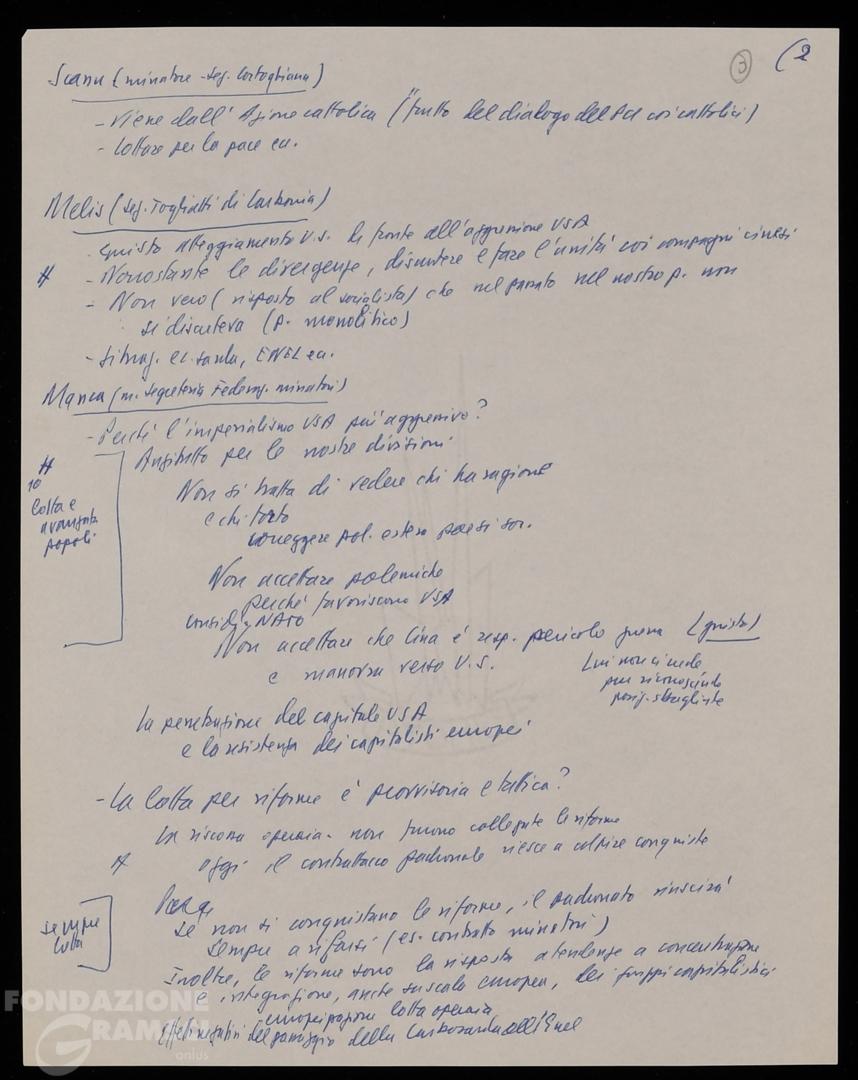 ③ (2
Scanu (minatore - seg. Cortoghiana)
- Viene dall'Azione cattolica ("frutto del dialogo del Pci coi cattolici)
- Lottare per la pace ec.
Melis (seg. Togliatti di Carbonia)
- Giusto atteggiamento U.S. di fronte all'aggressione USA
# - Nonostante le divergenze, discutere e fare l'unità coi compagni cinesi
- Non vero (risposto al socialista) che nel passato nel nostro p. non
si discuteva (p. monolitico)
- Situaz. ec. sarda, ENEL ec.
Manca (m. segreteria Federaz. minatori)
- Perché l'imperialismo USA più aggressivo?
Anzitutto per le nostre divisioni
#
10
Lotta e
avanzata
popoli
Non si tratta di vedere chi ha ragione
e chi torto
correggere pol. estera paesi soc.
Non accettare polemiche
perché favoriscono USA
NATO
Non accettare che Cina è resp. pericolo guerra (giusto)
e manovra verso U.S.
Lui non ci crede
pur riconoscendo
posiz. sbagliate
La penetrazione del capitale USA
e la resistenza dei capitalisti europei
- La lotta per riforme è provvisoria e tattica?
La riscossa operaia - non furono collegate le riforme
# oggi il contrattacco padronale riesce a colpire conquiste
sempre
lotta
Se non si conquistano le riforme, il padronato riuscirà
sempre a rifarsi (es. contratto minatori)
Inoltre, le riforme sono la risposta a tendenze a concentrazione
e integrazione, anche su scala europea, dei gruppi capitalistici
lotta operaia
Effetti negativi del passaggio della Carbosarda all'Enel
FONDAZIONE
GRAMSCI
onlus